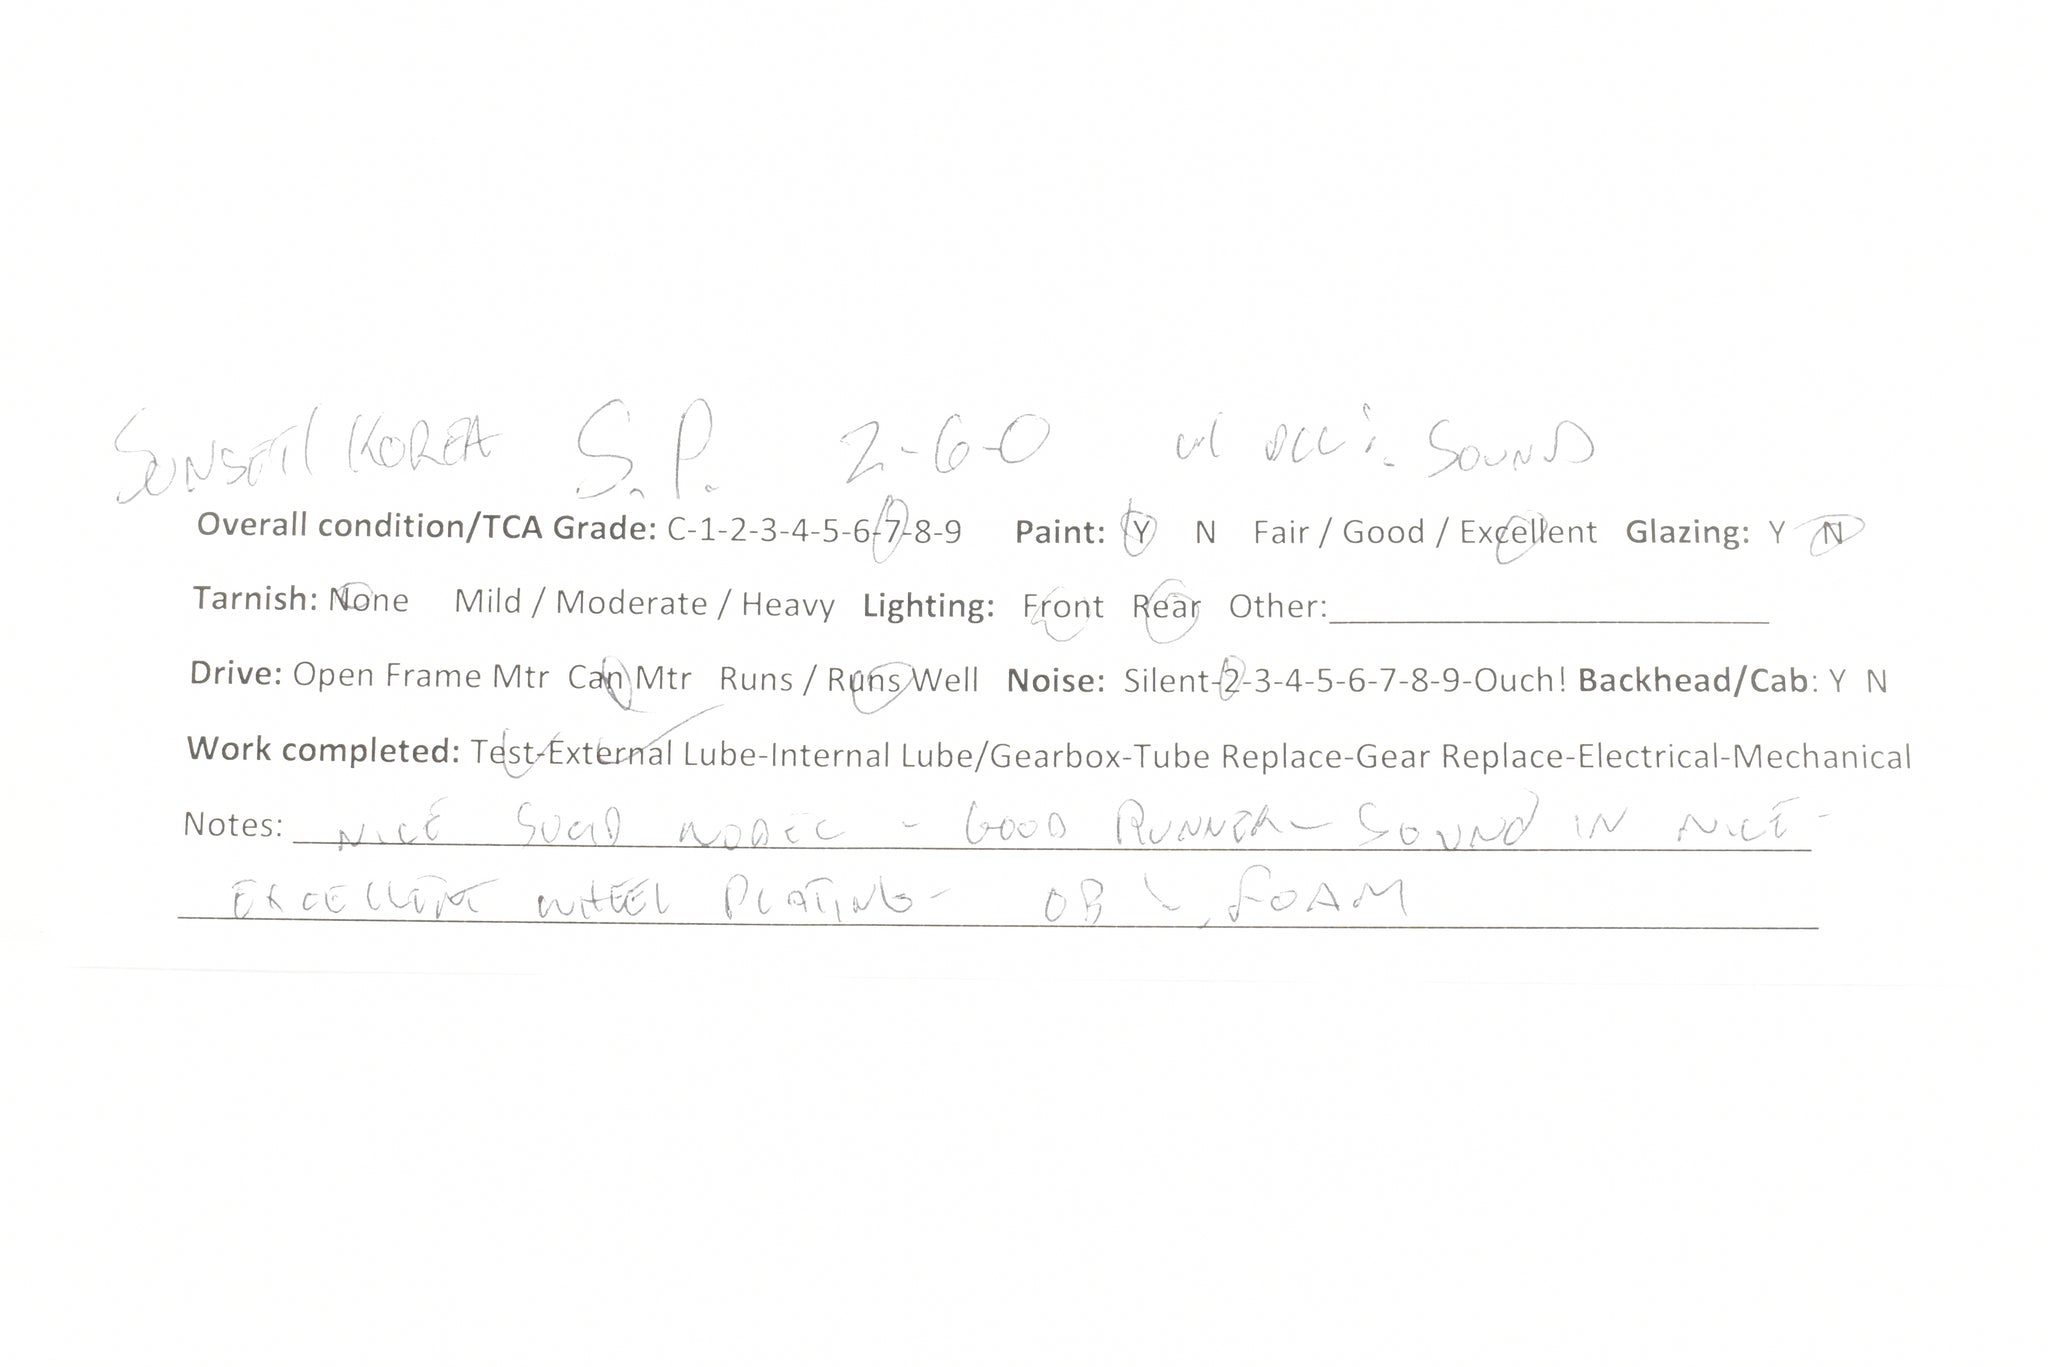 SUNSET/KOREA S.P. 2-6-0 w/ DCC & SOUND
Overall condition/TCA Grade: C-1-2-3-4-5-6-7-8-9 Paint: Y N Fair / Good / Excellent Glazing: Y N
Tarnish: None Mild / Moderate / Heavy Lighting: Front Rear Other:
Drive: Open Frame Mtr Can Mtr Runs / Runs Well Noise: Silent-2-3-4-5-6-7-8-9-Ouch! Backhead/Cab: Y N
Work completed: Test-External Lube-Internal Lube/Gearbox-Tube Replace-Gear Replace-Electrical-Mechanical
Notes: NICE SOLID MODEL - GOOD RUNNER - SOUND IN NICE -
EXCELLENT WHEEL PLATING - OB & FOAM